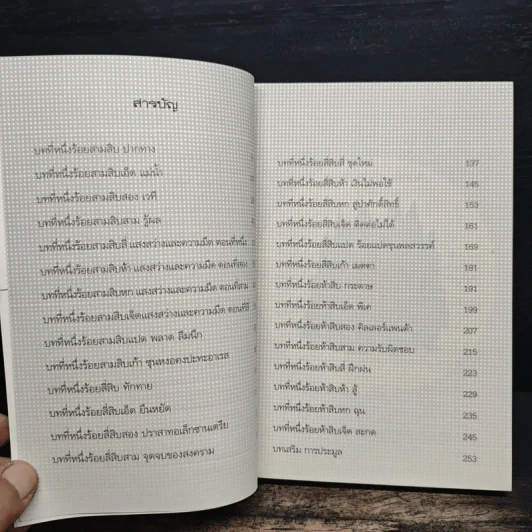 สารบัญ
บทที่หนึ่งร้อยสามสิบ ปากทาง
บทที่หนึ่งร้อยสามสิบเอ็ด แม่น้ำ
บทที่หนึ่งร้อยสามสิบสอง เวที
บทที่หนึ่งร้อยสามสิบสาม รู้ผล
บทที่หนึ่งร้อยสามสิบสี่ แสงสว่างและความมืด ตอนที่หนึ่ง
บทที่หนึ่งร้อยสามสิบห้า แสงสว่างและความมืด ตอนที่สอง
บทที่หนึ่งร้อยสามสิบหก แสงสว่างและความมืด ตอนที่สาม
บทที่หนึ่งร้อยสามสิบเจ็ดแสงสว่างและความมืด ตอนที่สี่
บทที่หนึ่งร้อยสามสิบแปด พลาด ลืมนึก
บทที่หนึ่งร้อยสามสิบเก้า ซุนหงอคงปะทะอาเรส
บทที่หนึ่งร้อยสี่สิบ ทักทาย
บทที่หนึ่งร้อยสี่สิบเอ็ด ยืนหยัด
บทที่หนึ่งร้อยสี่สิบสอง ปราสาทอเล็กซานเดรีย
บทที่หนึ่งร้อยสี่สิบสาม จุดจบของสงคราม
บทที่หนึ่งร้อยสี่สิบสี่ ชุดใหม่ 137
บทที่หนึ่งร้อยสี่สิบห้า เงินไม่พอใช้ 145
บทที่หนึ่งร้อยสี่สิบหก สู่ป่าศักดิ์สิทธิ์ 153
บทที่หนึ่งร้อยสี่สิบเจ็ด ติดต่อไม่ได้ 161
บทที่หนึ่งร้อยสี่สิบแปด ร้อยแปดขุนพลสวรรค์ 169
บทที่หนึ่งร้อยสี่สิบเก้า เมตตา 181
บทที่หนึ่งร้อยห้าสิบ กระดาษ 191
บทที่หนึ่งร้อยห้าสิบเอ็ด พีเค 199
บทที่หนึ่งร้อยห้าสิบสอง คิลเลอร์แพนด้า 207
บทที่หนึ่งร้อยห้าสิบสาม ความรับผิดชอบ 215
บทที่หนึ่งร้อยห้าสิบสี่ ฝึกฝน 223
บทที่หนึ่งร้อยห้าสิบห้า สู้ 229
บทที่หนึ่งร้อยห้าสิบหก ฉุน 235
บทที่หนึ่งร้อยห้าสิบเจ็ด สะกด 245
บทเสริม การประมูล 253